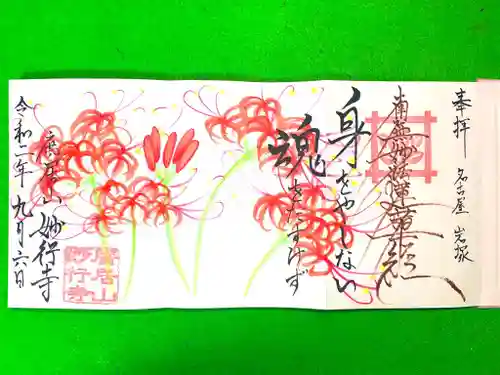 奉拝 名古屋 岩塚
南無妙法蓮華経
身をやしない
魂をたすけず
廣居山 妙行寺
令和二年九月六日
廣居山
妙行寺